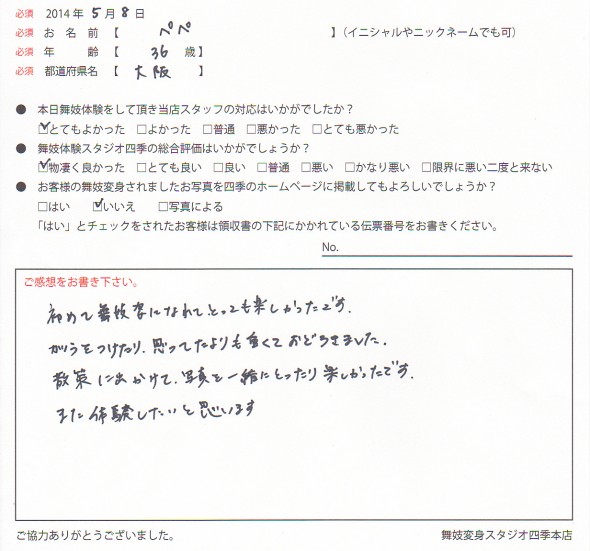 必須 2014 年 5 月 8 日
必須 お 名 前 【 ペペ 】(イニシャルやニックネームでも可)
必須 年 齢 【 36 歳】
必須 都道府県名 【 大阪 】
● 本日舞妓体験をして頂き当店スタッフの対応はいかがでしたか?
☑とてもよかった □よかった □普通 □悪かった □とても悪かった
● 舞妓体験スタジオ四季の総合評価はいかがでしょうか?
☑物凄く良かった □とても良い □良い □普通 □悪い □かなり悪い □限界に悪い二度と来ない
● お客様の舞妓変身されましたお写真を四季のホームページに掲載してもよろしいでしょうか?
□はい ☑いいえ □写真による
「はい」とチェックをされたお客様は領収書の下記にかかれている伝票番号をお書きください。
No.
ご感想をお書き下さい。
初めて舞妓姿になれてとっても楽しかったです.
かつらをつけたり、思ってたよりも重くておどろきました.
散策に出かけて、写真を一緒にとったり楽しかったです.
また体験したいと思います
ご協力ありがとうございました。
舞妓変身スタジオ四季本店